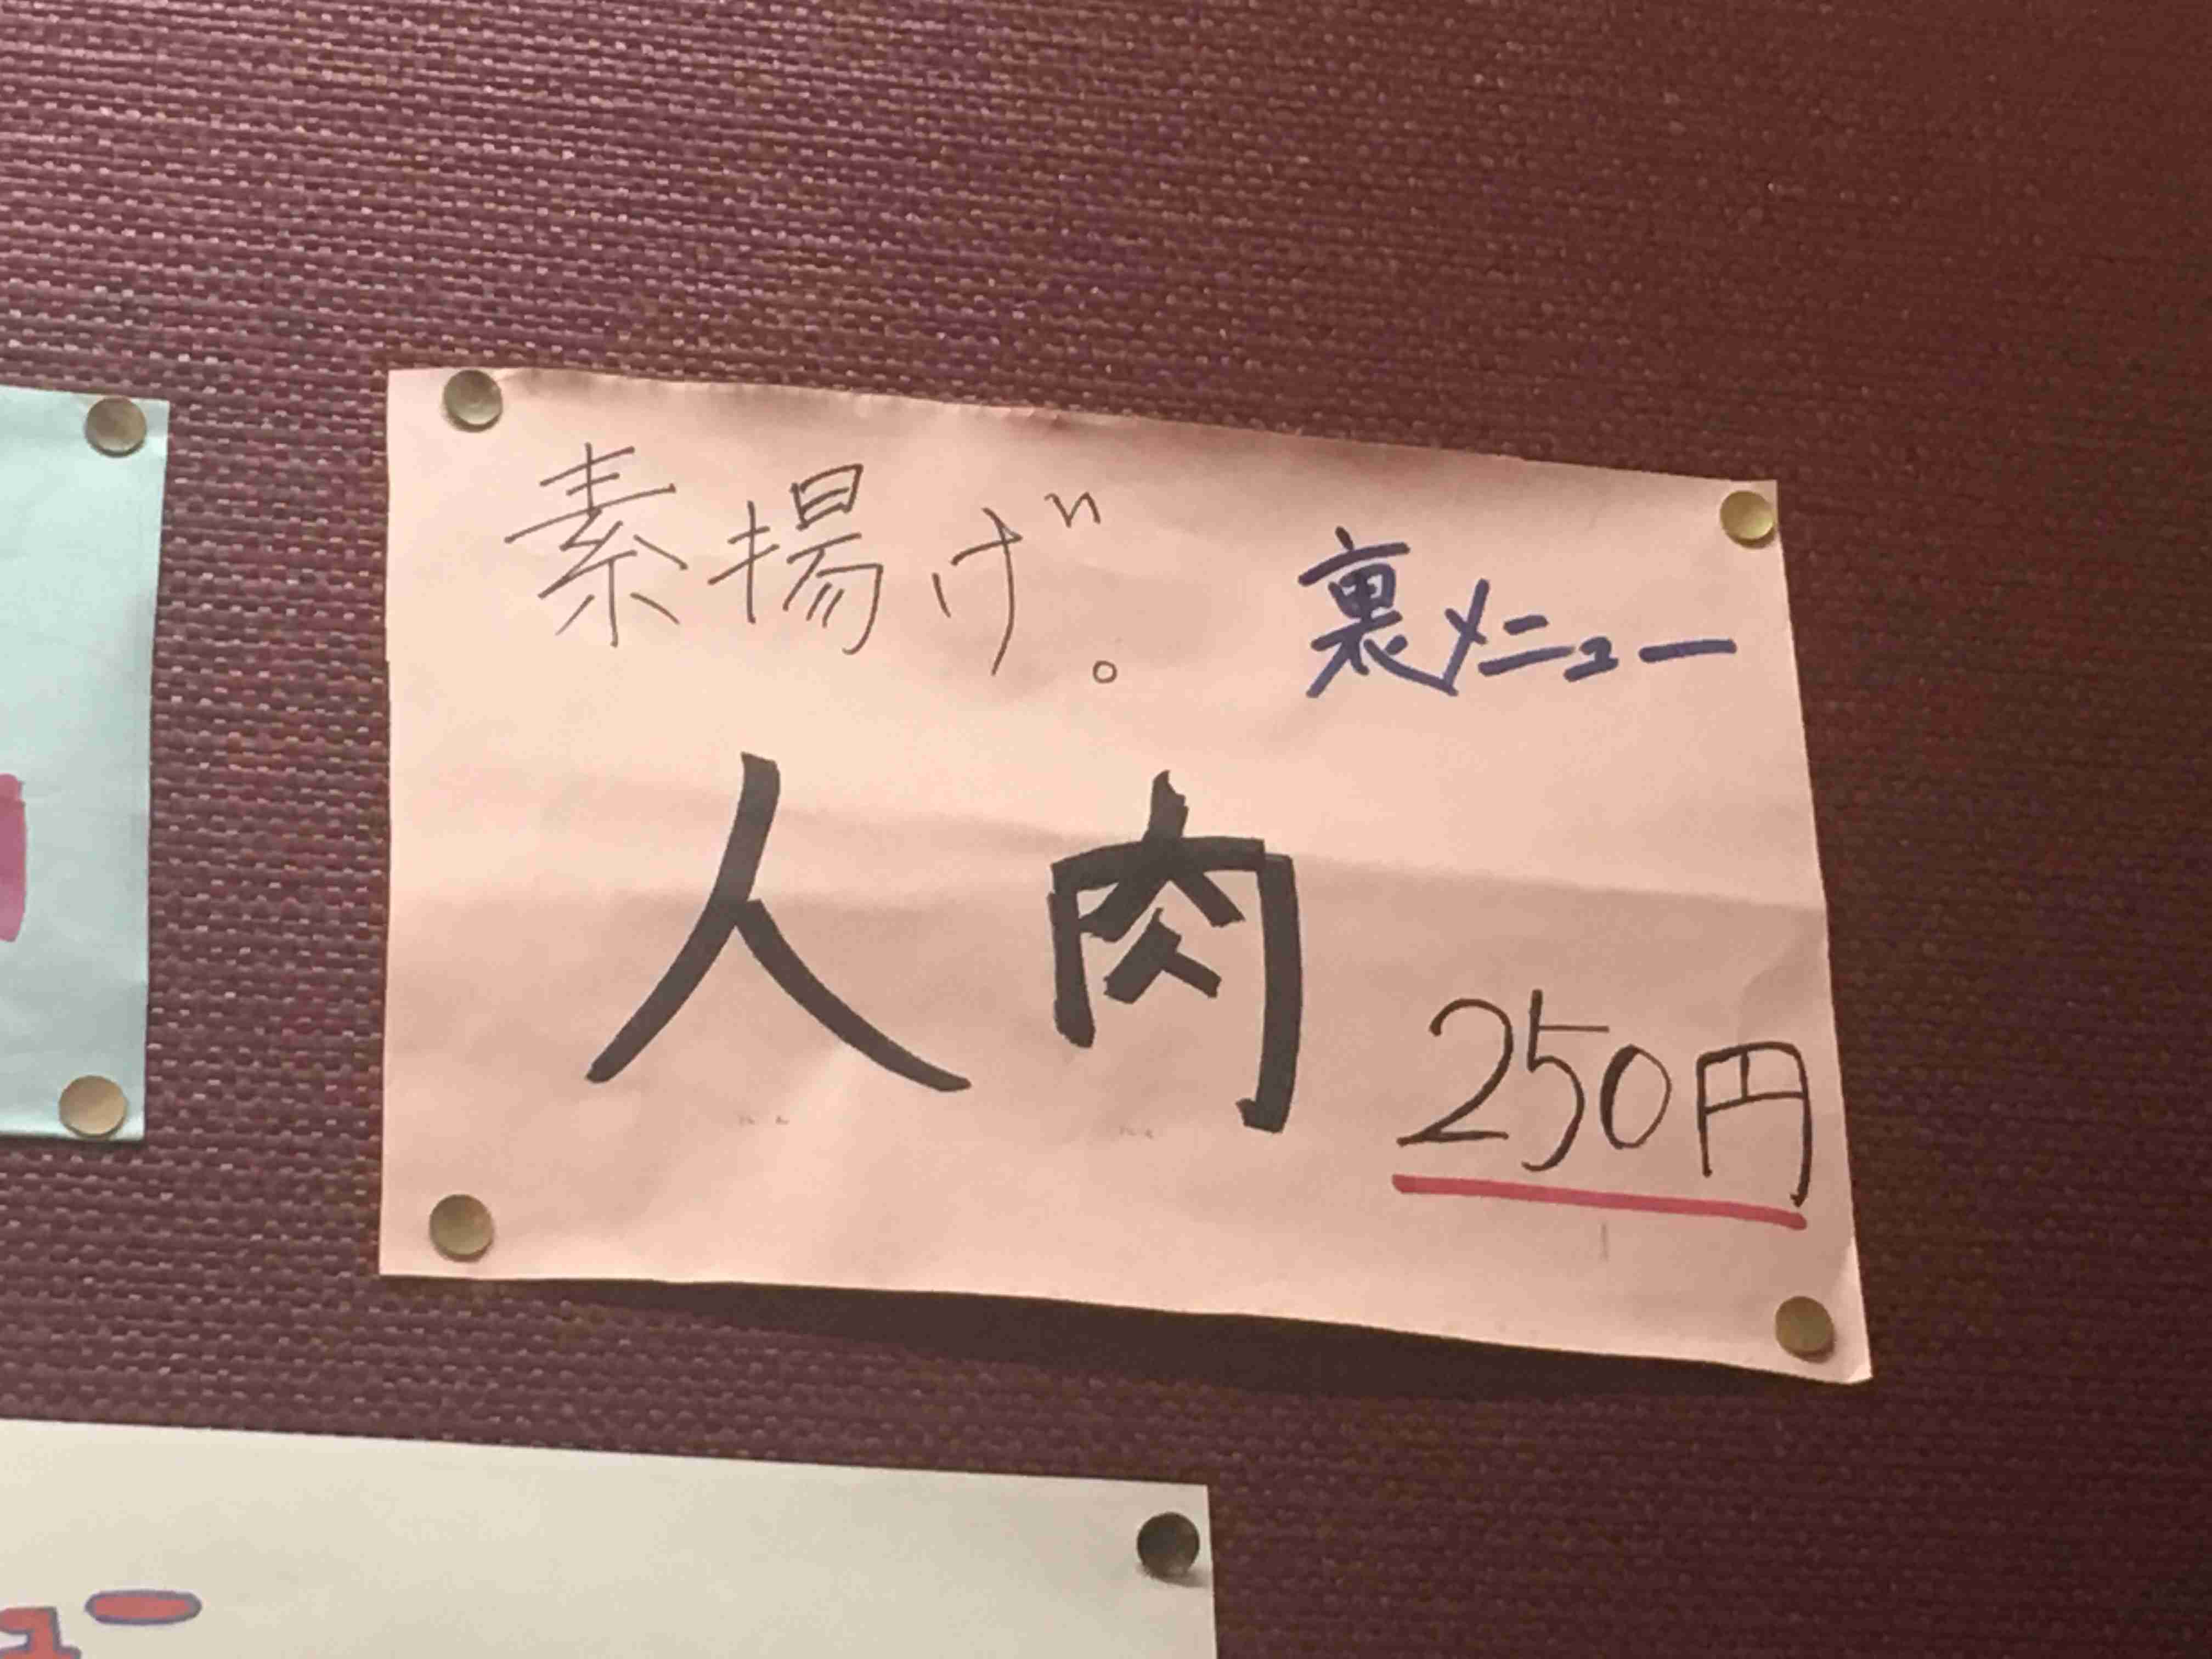 素揚げ。
裏メニュー
人肉
250円
ュー